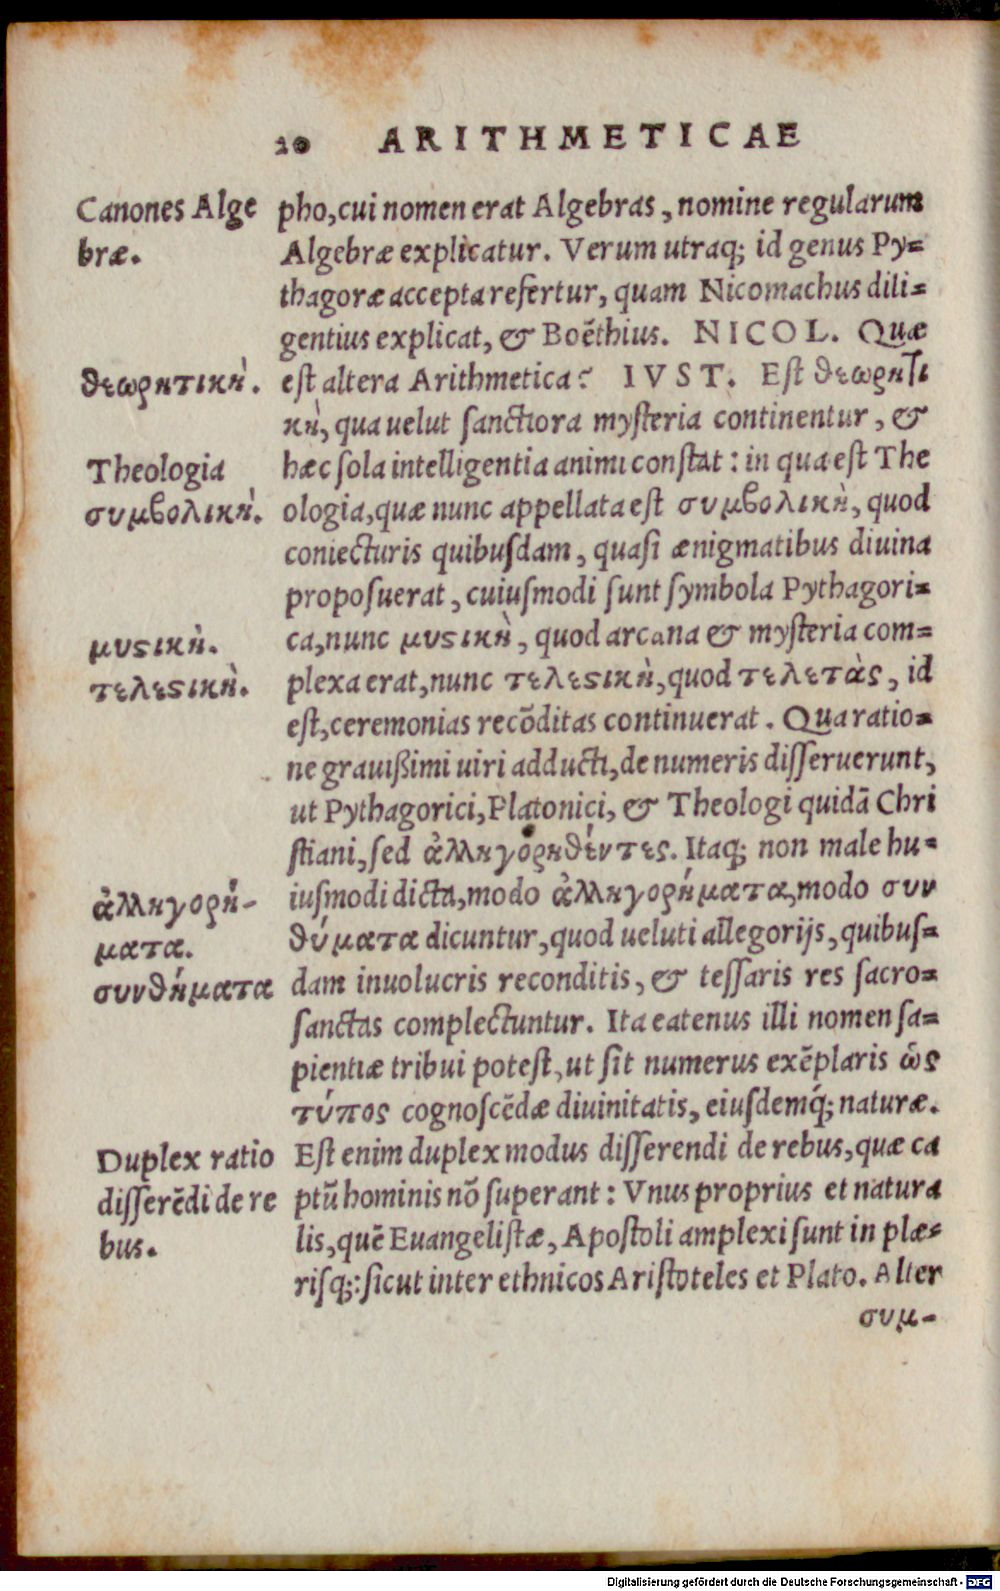 20 ARITHMETICAE
Canones Alge
bræ.
pho, cui nomen erat Algebras, nomine regularum
Algebræ explicatur. Verum utraq; id genus Py=
thagoræ accepta refertur, quam Nicomachus dili=
gentius explicat, & Boëthius. NICOL. Quæ
θεωρητική.
est altera Arithmetica? IVST. Est θεωρητι
κὴ, qua uelut sanctiora mysteria continentur, &
Theologia
συμβολικὴ.
hæc sola intelligentia animi constat: in qua est The
ologia, quæ nunc appellata est συμβολικὴ, quod
coniecturis quibusdam, quasi ænigmatibus diuina
proposuerat, cuiusmodi sunt symbola Pythagori=
μυϛικὴ.
τελεϛικὴ.
ca, nunc μυϛικὴ, quod arcana & mysteria com=
plexa erat, nunc τελεϛικὴ, quod τελετὰς, id
est, ceremonias recõditas continuerat. Qua ratio=
ne grauißimi uiri adducti, de numeris disseruerunt,
ut Pythagorici, Platonici, & Theologi quidã Chri
stiani, sed ἀλληγορηθέντες. Itaq; non male hu=
ἀλληγορή-
ματα.
συνθήματα
iusmodi dicta, modo ἀλληγορήματα, modo συν
θύματα dicuntur, quod ueluti allegorijs, quibus=
dam inuolucris reconditis, & tessaris res sacro=
sanctas complectuntur. Ita eatenus illi nomen sa=
pientiæ tribui potest, ut sit numerus exẽplaris ὡς
τύπος cognoscẽdæ diuinitatis, eiusdemq́; naturæ.
Duplex ratio
disserẽdi de re
bus.
Est enim duplex modus disserendi de rebus, quæ ca
ptũ hominis nõ superant: Vnus proprius et natura
lis, quẽ Euangelistæ, Apostoli amplexi sunt in plæ=
risq;: sicut inter ethnicos Aristoteles et Plato. Alter
συμ-
Digitalisierung gefördert durch die Deutsche Forschungsgemeinschaft - DFG